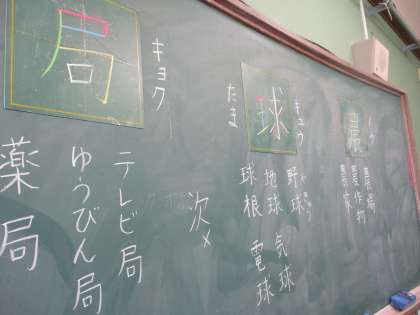 ノウ
農
農場
農作物
農家
キュウ
球
たま
やきゅう
野球
地球
球根
気球
電球
次
キョク
局
テレビ局
ゆうびん局
薬局